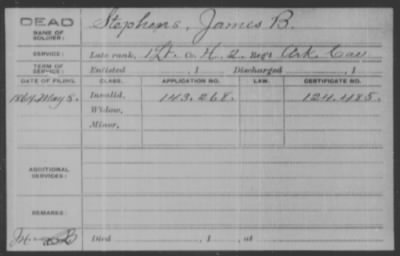 DEAD
NAME OF SOLDIER: Stephens, James B.
SERVICE: Late rank, 1 Lt. Co. H. 2. Reg't Ark. Cav.
TERM OF SERVICE: Enlisted , 1 Discharged , 1
DATE OF FILING. CLASS. APPLICATION NO. LAW. CERTIFICATE NO.
May 8. Invalid, 143.268. 124.485.
Widow,
Minor,
ADDITIONAL SERVICES:
REMARKS:
Died , 1 , at